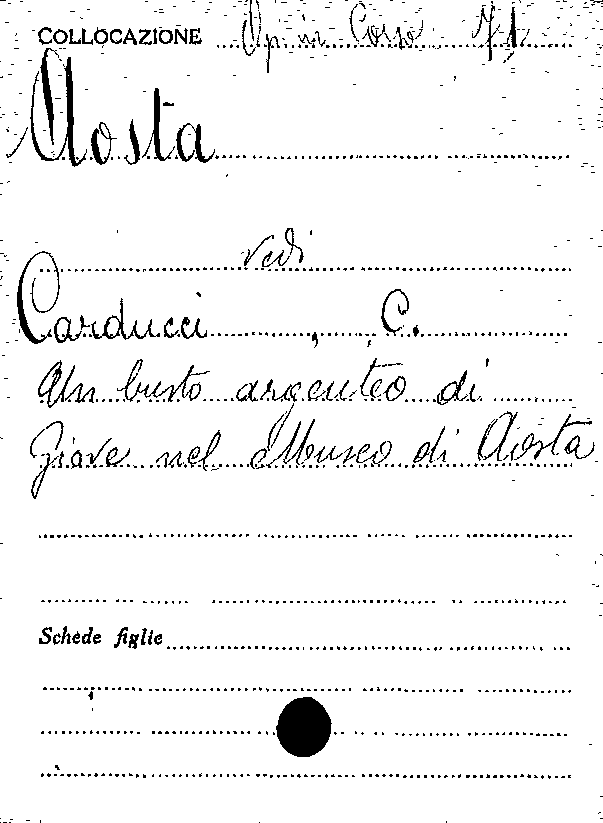 COLLOCAZIONE Op. in Corso 71
Aosta
vedi
Carducci , C.
Un busto argenteo di
Giove nel Museo di Aosta
Schede figlie